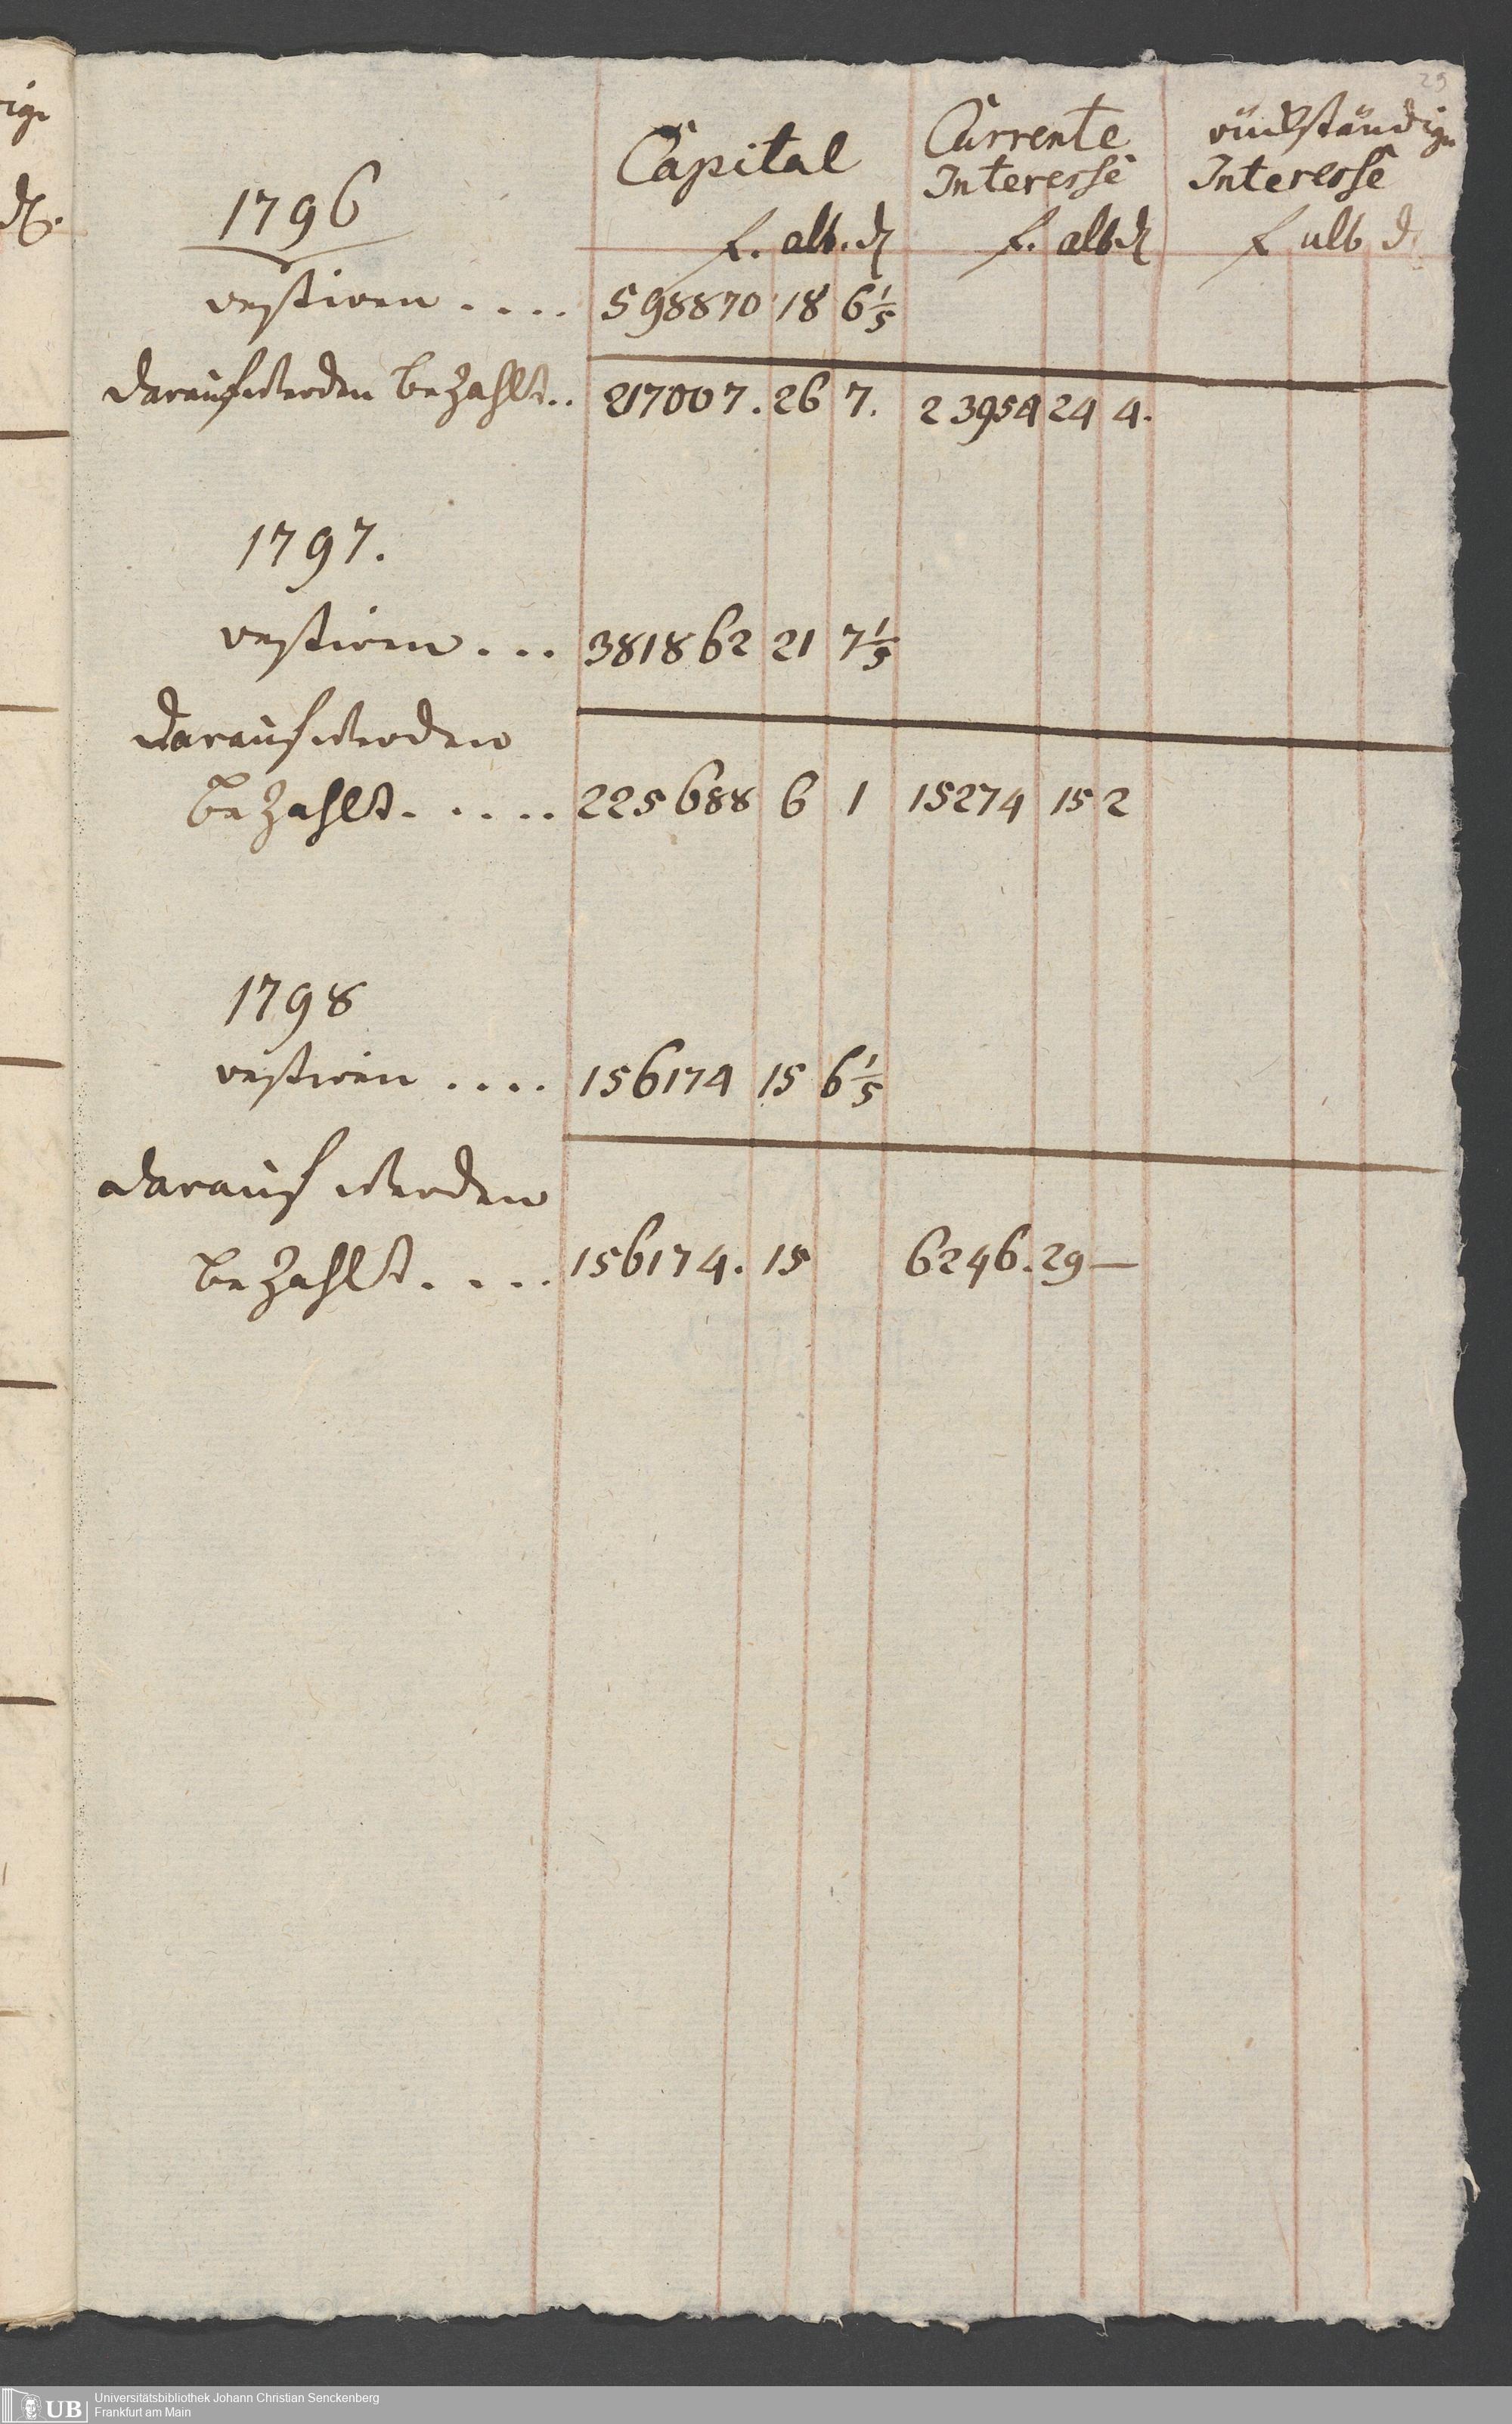 29
Capital
Currente
Interesse
rückständige
Interesse
1796
f. alb. d
f. alb d
f alb d
restiren .... 598870 18 6 1/5
darauf werden bezahlt.. 217007. 26 7. 23954 24 4.
1797.
restiren ... 381862 21 7 1/5
darauf werden
bezahlt..... 225688 6 1 15274 15 2
1798
restiren .... 156174 15 6 1/5
darauf werden
bezahlt.... 156174. 15 6246. 29 —
UB
Universitätsbibliothek Johann Christian Senckenberg
Frankfurt am Main